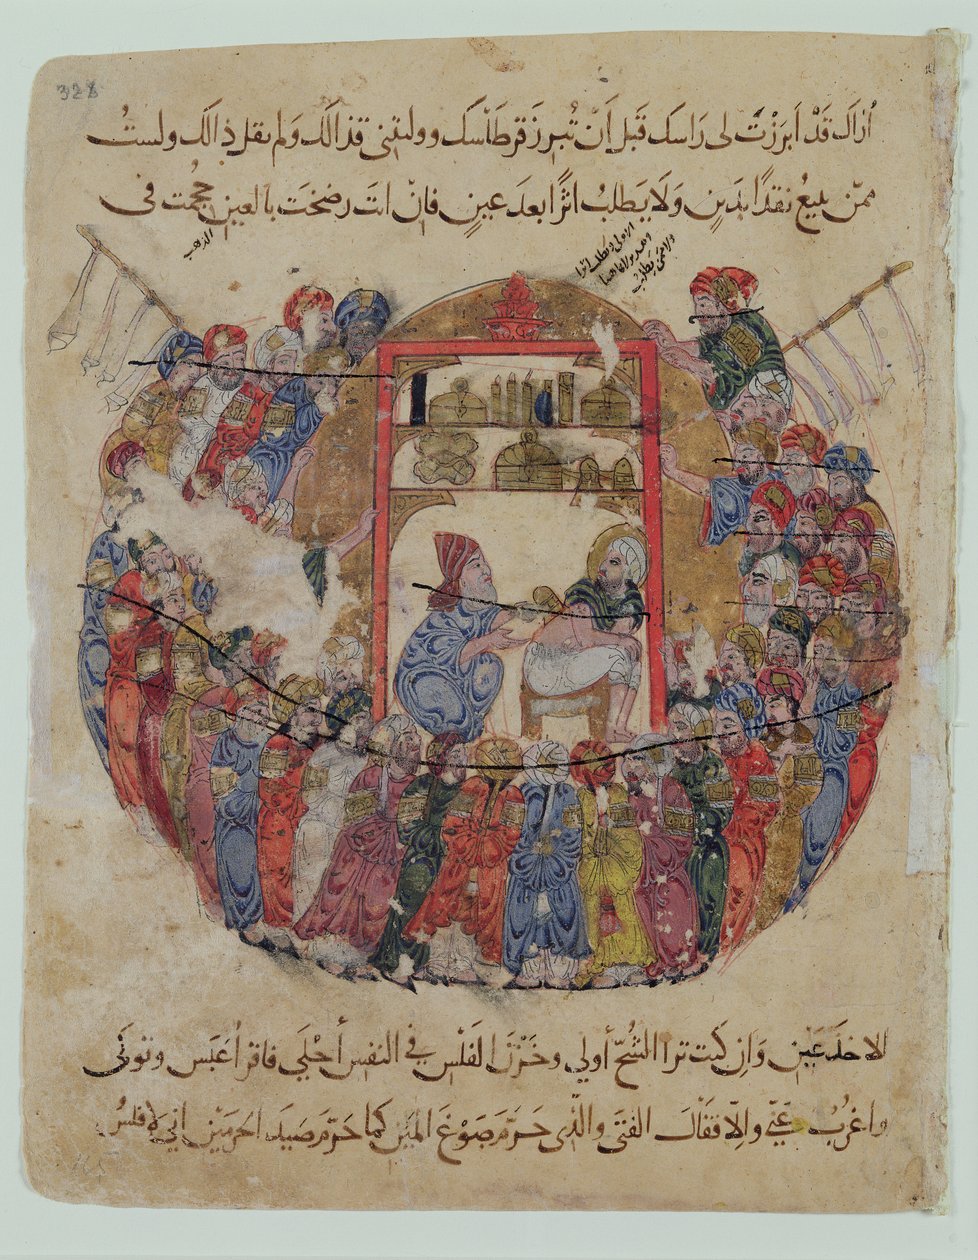 328
أراك قد أبرزت لي راسك قبل أن تبرز قرطاسك وولیتنی قذالك ولم تقل ذالك ولست
ممن یبیع نقدا بدین ولا یطلب اثرا بعد عین فان انت رضخت بالعین حجمت فی
الذهب
الاخدعین وان كنت ترا الشح أولی وخزن الفلس فی النفس أحلی فاقرا عبس وتولی
واغرب عنی والا فقال الفتی والذی حرم صوغ المین كما حرم صید الحرمین انی لافلس